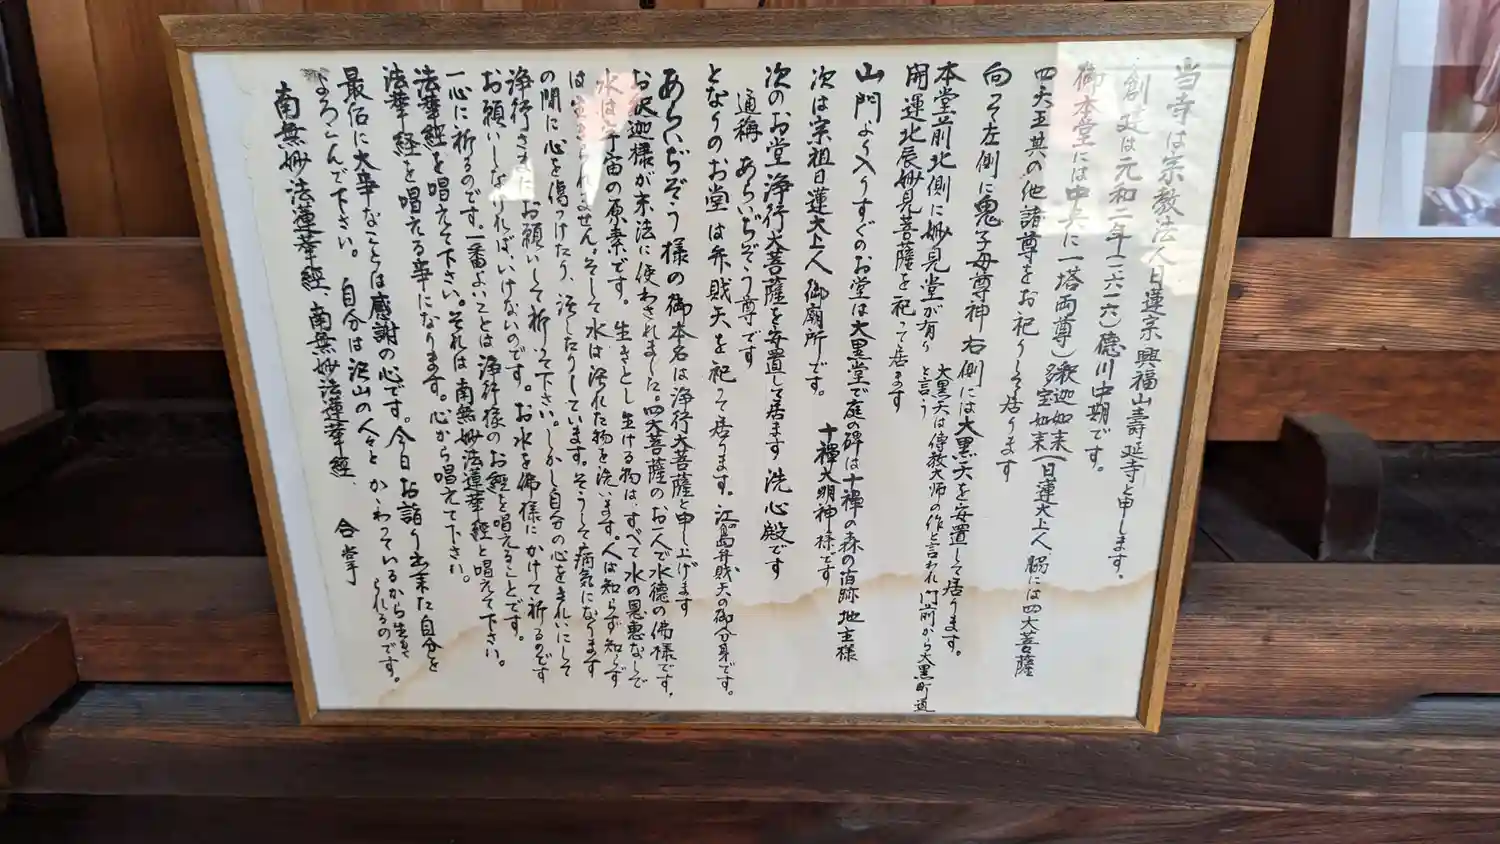 当寺は宗教法人日蓮宗 興福山壽延寺と申します、
創立は元和二年(一六一六)徳川中期です。
御本堂には中央に一塔両尊)釈迦如来 多宝如来(日蓮大上人 脇には四大菩薩
四天王其の他諸尊をお祀りして居ります
向って左側に鬼子母尊神 右側には大黒天を安置して居ります。
大黒天は傳教大師の作と言われ門前から大黒町通
と言う
本堂前北側に妙見堂が有り
開運北辰妙見菩薩を祀って居ます
山門より入りすぐのお堂は大黒堂で庭の碑は十禅の森の宿跡 地主様
十禅大明神様です
次は宗祖日蓮大上人御廟所です。
次のお堂 浄行大菩薩を安置して居ます 洗心殿です
通称 あらいぢぞう尊です
となりのお堂は弁財天を祀って居ります。江島弁財天の御分身です。
あらいぢぞう様の御本名は浄行大菩薩と申し上げます
お釈迦様が末法に使わされました。四大菩薩のお一人で水徳の佛様です,
水は宇宙の原素です。生きとし生ける物は、すべて水の恩恵なしで
は生きられません。そして水は汚れた物を洗います。人は知らず知らず
の間に心を傷つけたり、汚したりしています。そうして病気になります
浄行さまにお願いして祈って下さい。しかし自分の心をきれいにして
お願いしなければいけないのです。お水を佛様にかけて祈るのです
一心に祈るのです。一番よいことは浄行様のお経を唱えることです。
法華経を唱えて下さい。それは南無妙法蓮華経と唱えて下さい。
法華経を唱える事になります。心から唱えて下さい。
最后に大事なことは感謝の心です。今日お詣り出来た自分を
よろこんで下さい。自分は沢山の人々とかかわっているから生きられるのです。
南無妙法蓮華経、南無妙法蓮華経、 合掌